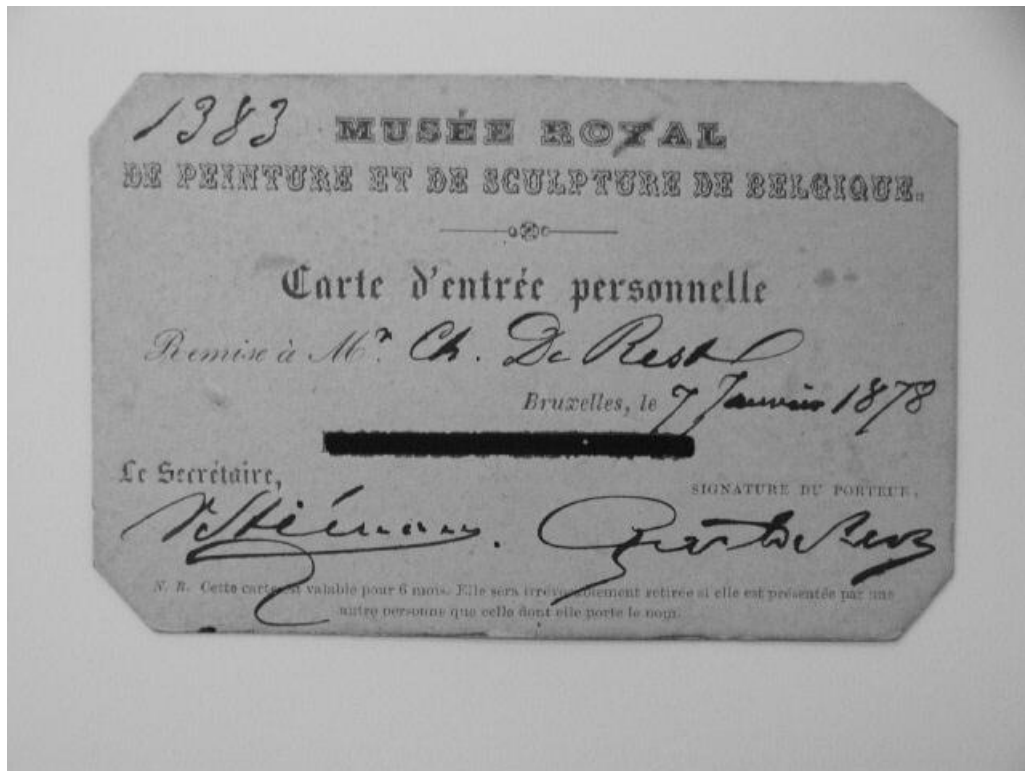 1383 MUSÉE ROYAL
DE PEINTURE ET DE SCULPTURE DE BELGIQUE.
Carte d'entrée personnelle
Remise à Mr. Ch. De
Bruxelles, le 7 Janvier 1878
Le Secrétaire,
SIGNATURE DU PORTEUR,
N. B. Cette carte est valable pour 6 mois. Elle sera irrévocablement retirée si elle est présentée par une
autre personne que celle dont elle porte le nom.